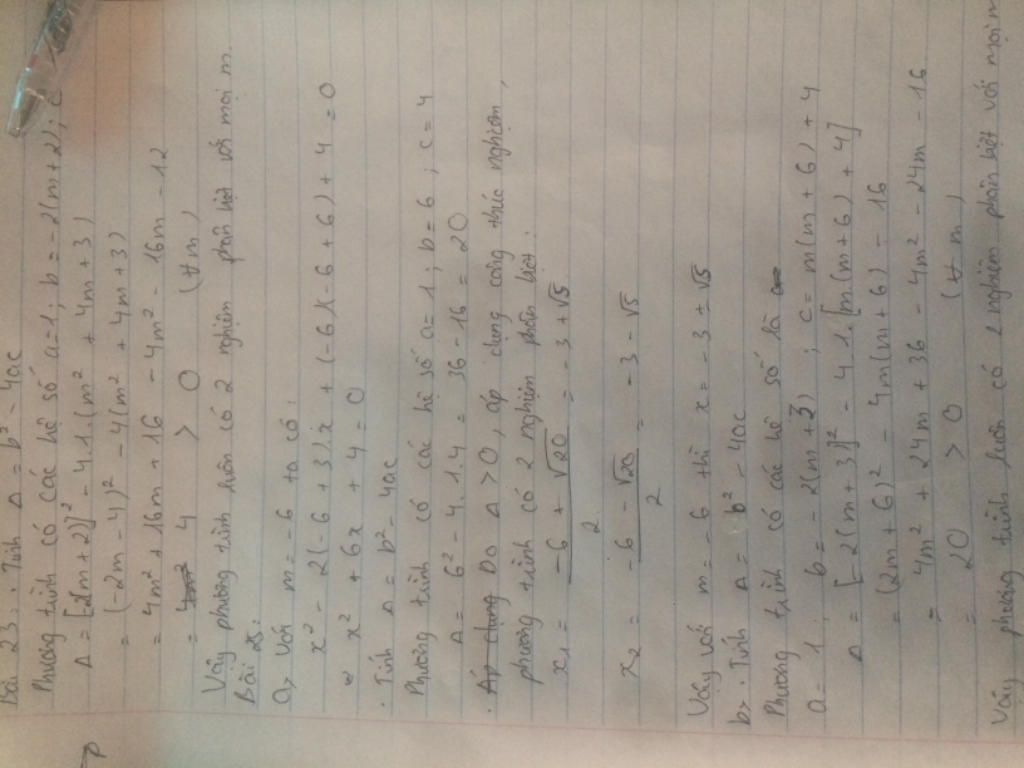 Bài 23: Tính Δ = b² - 4ac
Phương trình có các hệ số a=1; b=-2(m+2); c
Δ = [-2(m+2)]² - 4.1.(m² + 4m + 3)
= (-2m-4)² - 4(m² + 4m + 3)
= 4m² + 16m + 16 - 4m² - 16m - 12
= 4 > 0 (∀m)
Vậy phương trình luôn có 2 nghiệm phân biệt với mọi m.
Bài 25:
a, Với m = -6 ta có:
x² - 2(-6 + 3)x + (-6)(-6 + 6) + 4 = 0
x² + 6x + 4 = 0
. Tính Δ = b² - 4ac
Phương trình có các hệ số a=1; b=6; c=4
Δ = 6² - 4.1.4 = 36 - 16 = 20
. Áp dụng Do Δ > 0, áp dụng công thức nghiệm,
phương trình có 2 nghiệm phân biệt.
x₁ = -6 + √20 / 2 = -3 + √5
x₂ = -6 - √20 / 2 = -3 - √5
Vậy với m = -6 thì x = -3 ± √5
b, . Tính Δ = b² - 4ac
Phương trình có các hệ số là
a = 1; b = -2(m+3); c = m(m+6) + 4
Δ = [-2(m+3)]² - 4.1.[m(m+6) + 4]
= (2m+6)² - 4m(m+6) - 16
= 4m² + 24m + 36 - 4m² - 24m - 16
= 20 > 0 (∀m)
Vậy phương trình luôn có 2 nghiệm phân biệt với mọi m